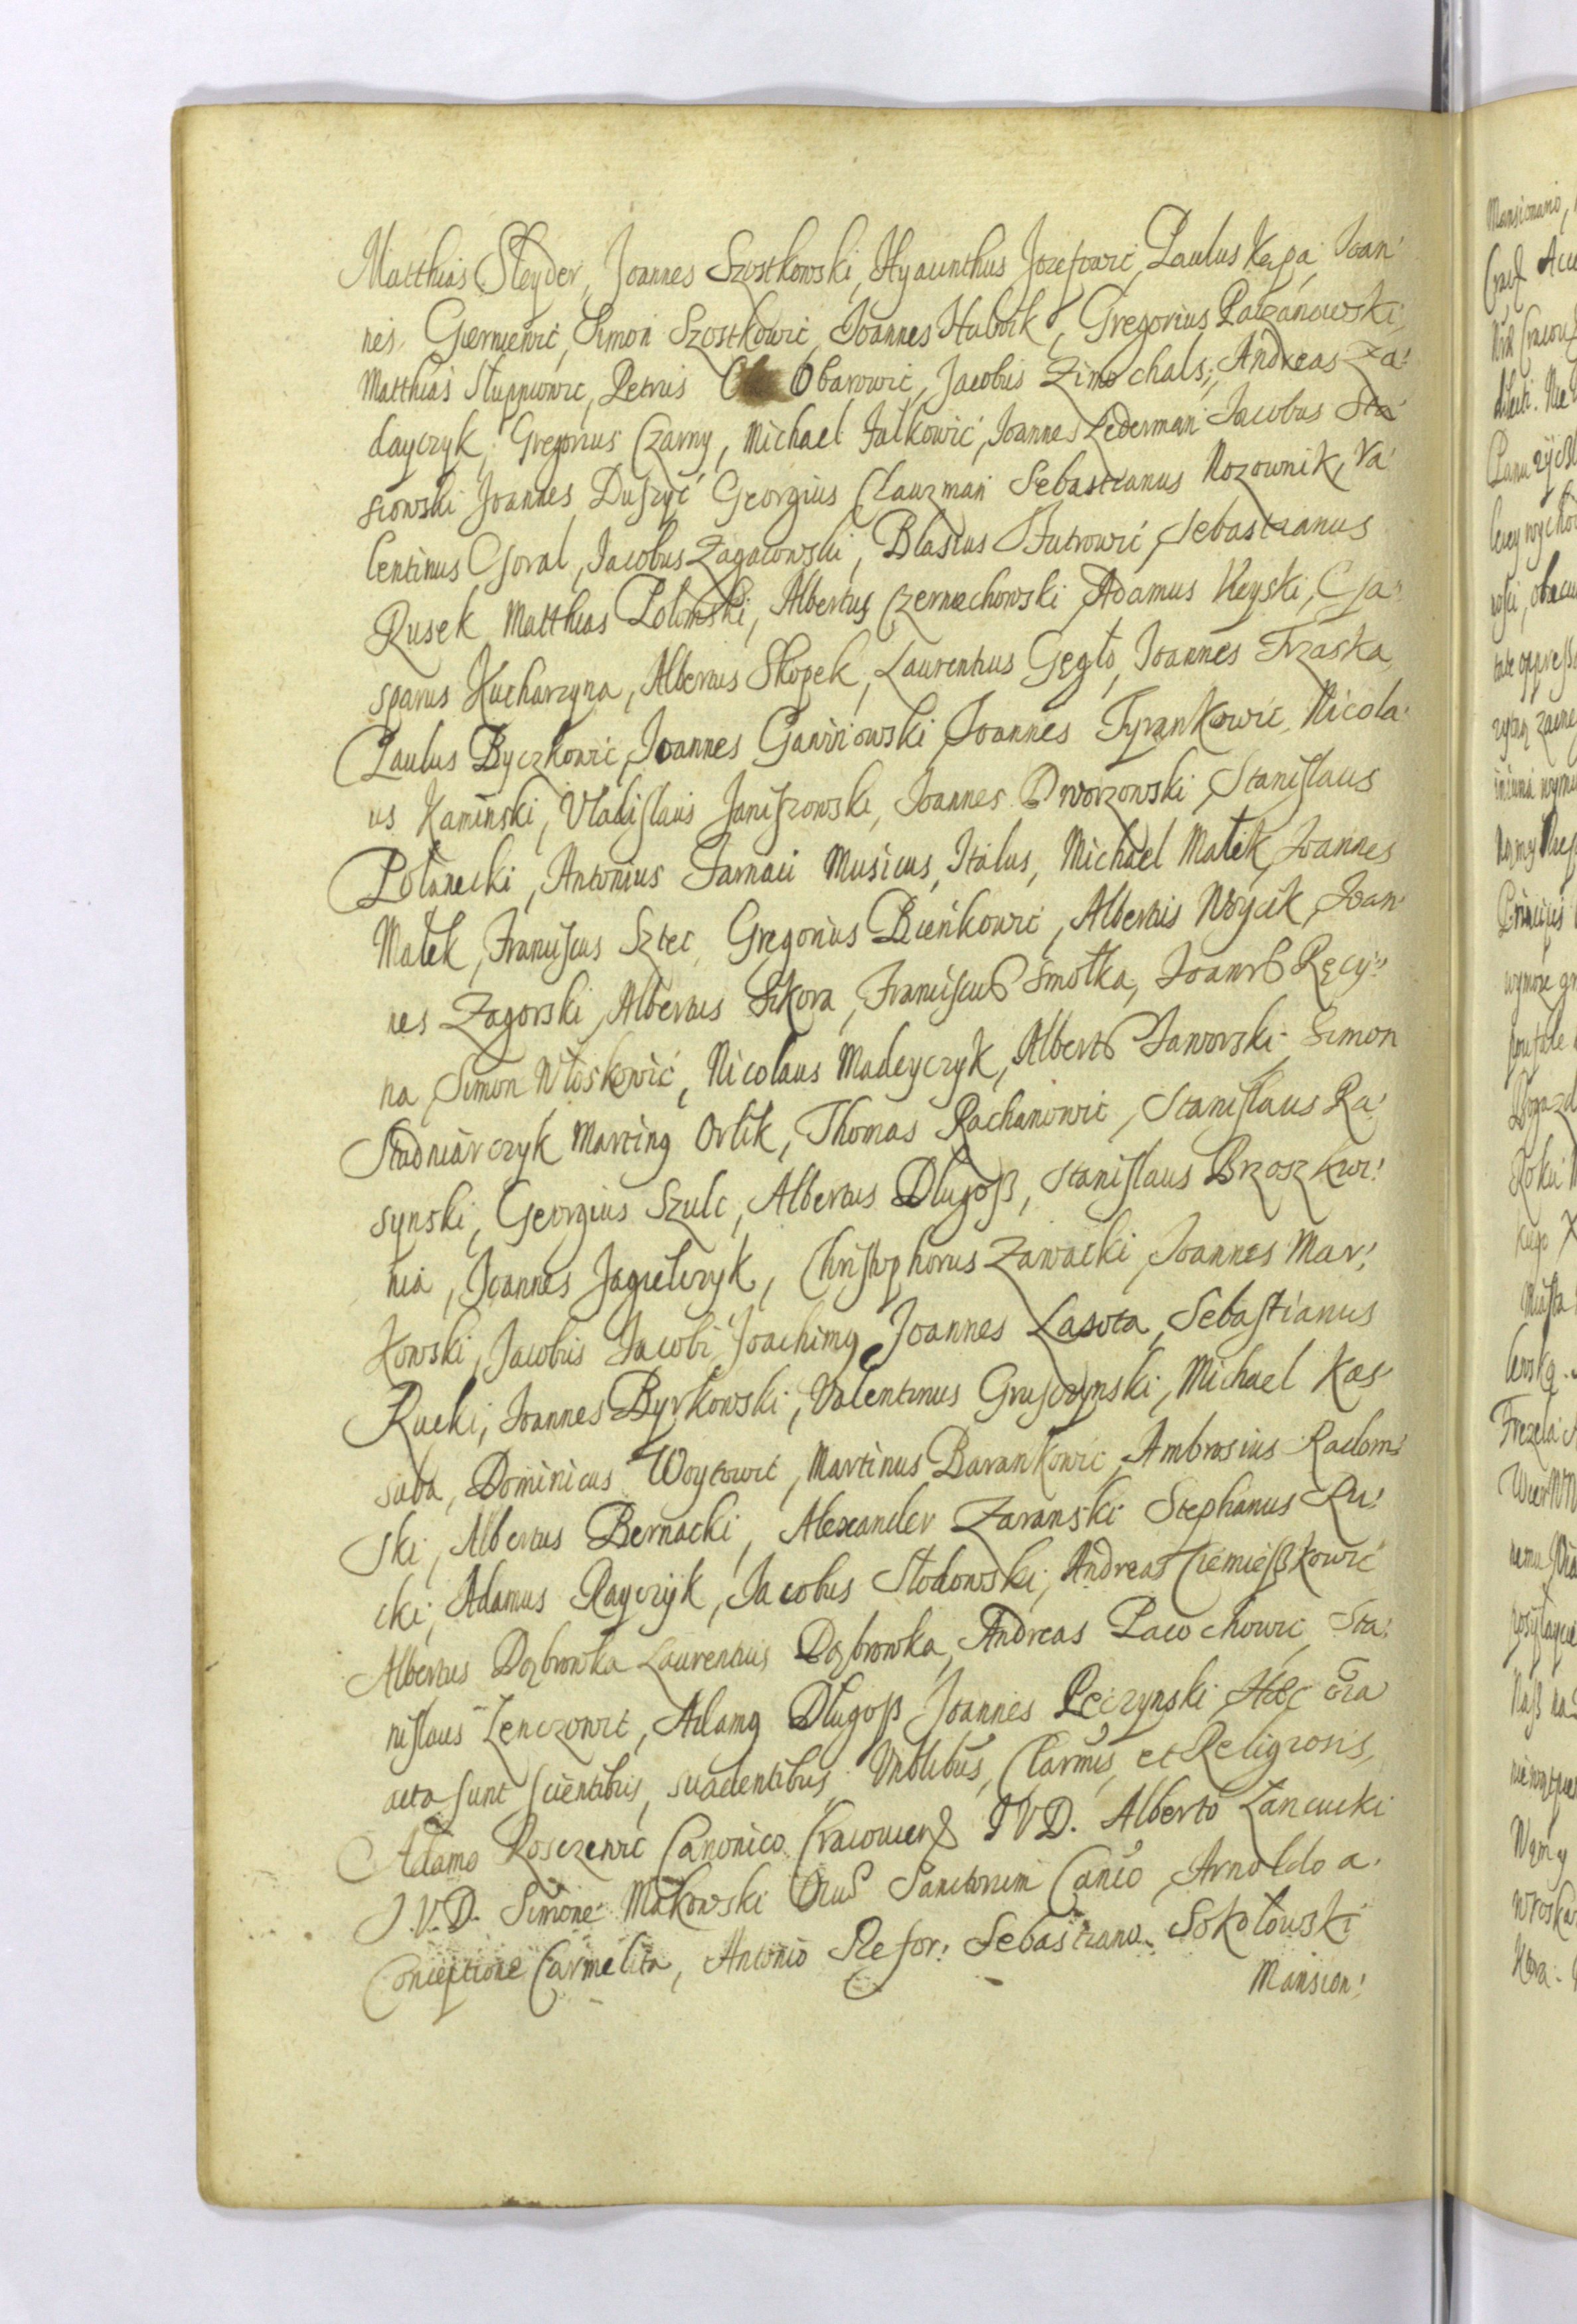 Matthias Sleyder, Joannes Szostkowski, Hyacinthus Jozefowic, Paulus Kępa Ioan:
nes Gierniewic, Simon Szostkowic, Ioannes Hubnik, Gregorius Palzanowski,
Matthias Slupniowic, Petrus Obarowic, Jacobus Zimochals, Andreas Za:
dayczyk, Gregorius Czarny, Michael Falkowic, Joannes Lederman Jacobus Sta
siowski Joannes Duszyc Georgius Clauzman Sebastianus Nozownik, Va
lentinus Goral, Jacobus Zagacowski, Blasius Futrowic, Sebastianus
Rusek Matthias Polomski, Albertus Czerniechowski Adamus Keyski, Ga:
sparus Kucharzyna, Albertus Skopek, Laurentius Gęgło, Joannes Trzaska,
Paulus Byczkowic, Joannes Gawinowski Joannes Tyrankowic, Nicola:
us Kaminski, Vladislaus Janiszowski, Joannes Dworzowski Stanislaus
Polanecki, Antonius Farnaci Musicus, Italus, Michael Małek, Joannes
Małek, Franciscus Sztec, Gregorius Bieńkowic, Albertus Woycik, Ioan:
nes Zagorski, Albertus Sikora, Franciscus Smołka, Joannes Ręcy:
na, Simon Włoskowic, Nicolaus Madeyczyk, Albertus Jaworski Simon
Studniarczyk Martinus Orlik, Thomas Rachanowic, Stanislaus Ra:
synski, Georgius Szulc, Albertus Dlugoß, Stanislaus Brzoszkwi:
nia, Joannes Jagielczyk, Christophorus Zawacki, Joannes Mar:
kowski, Jacobus Jacobi Joachimus, Joannes Lasota, Sebastianus
Rucki, Joannes Byrkowski, Valentinus Grusczynski, Michael Kas
suba, Dominicus Woytowic, Martinus Barankowic, Ambrosius Radom:
ski, Albertus Bernacki, Alexander Zaranski Stephanus Ru:
cki, Adamus Rayczyk, Jacobus Słodowski, Andreas Ciemießkowic
Albertus Dąbrowka Laurentius Dąbrowka, Andreas Pacochowic, Sta:
nislaus Lenczowic, Adamus Dlugoß Joannes Pęczynski Hæc oĩa
acta sunt scientibus, suadentibus Vnblibus, Clarmis, et Religiosis,
Adamo Rosczewic Canonico Cracovien: I V D. Alberto Lancucki
J. V. D. Simone Makowski Oium Sanctorum Canco, Arnoldo a
Conceptione Carmelita, Antonio Refor: Sebastiano Sokołowski
Mansion: